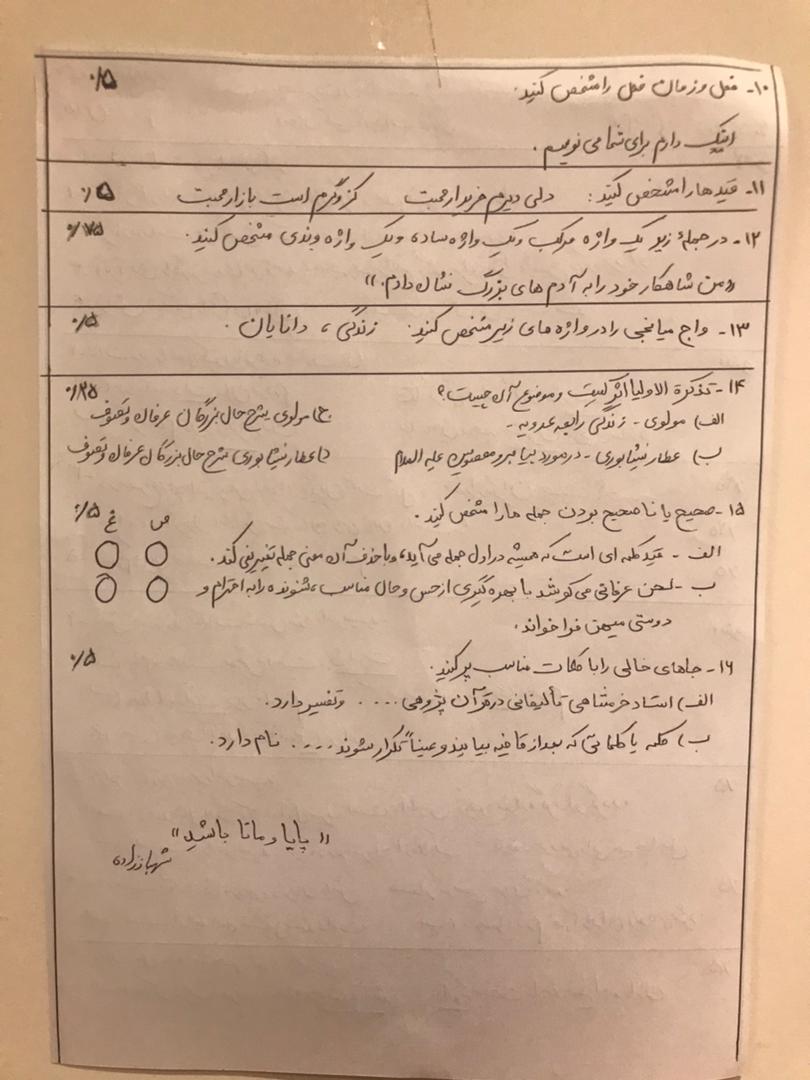 ۱۰- فعل و زمان فعل را مشخص کنید. ۰/۵
اینک دارم برای شما می نویسم.
۱۱- قیدها را مشخص کنید: دلی دیرم خریدار محبت کز و گرم است بازار محبت ۰/۵
۱۲- در جملهٔ زیر یک واژه مرکب و یک واژه ساده و یک واژه وندی مشخص کنید. ۰/۷۵
«من شاهکار خود را به آدم های بزرگ نشان دادم.»
۱۳- واج میانجی را در واژه های زیر مشخص کنید. زندگی ، دانایان . ۰/۵
۱۴- تذکرة الاولیا اثر کیست و موضوع آن چیست؟ ۰/۲۵
الف) مولوی - زندگی رابعه عدویه - ج) مولوی شرح حال بزرگان عرفان و تصوف
ب) عطار نیشابوری - در مورد پیامبر و معصومین علیه السلام د) عطار نیشابوری شرح حال بزرگان عرفان و تصوف
۱۵- صحیح یا ناصحیح بودن جمله ها را مشخص کنید. ۰/۵
ص غ
الف - قید کلمه ای است که همیشه در اول جمله می آید، و با حذف آن معنی جمله تغییر نمی کند.
ب - لحن عرفانی می کوشد با بهره گیری از حس و حال مناسب، شنونده را به احترام و
دوستی میهن فرا خواند.
۱۶- جاهای خالی را با کلمات مناسب پر کنید. ۰/۵
الف) استاد خرمشاهی تألیفاتی در قرآن پژوهی .... و تفسیر دارد.
ب) کلمه یا کلماتی که بعد از قافیه بیایند و عیناً تکرار شوند .... نام دارد.
«پایا و مانا باشید»
شهبازراده